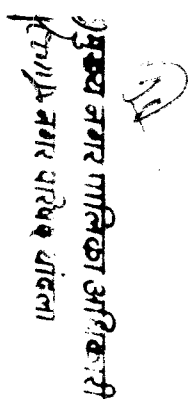 मुख्य नगर पालिका अधिकारी
नगर परिषद चांदला